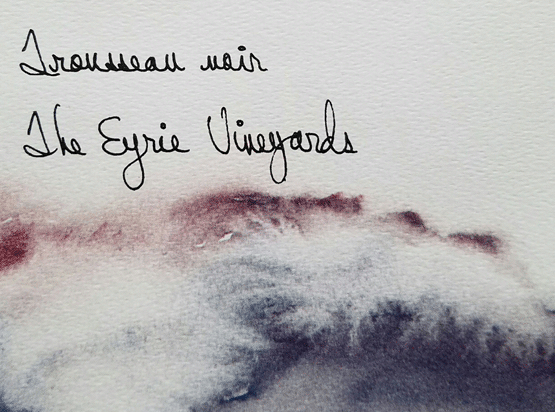 Trousseau noir
The Eyrie Vineyards